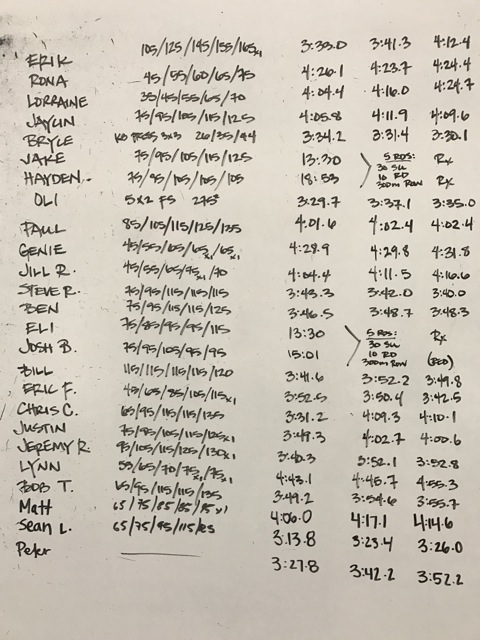 ERIK 105/125/145/155/165x1 3:33.0 3:41.3 4:12.4
RONA 45/55/60/65/75 4:26.1 4:23.7 4:24.4
LORRAINE 35/45/55/65/70 4:04.4 4:16.0 4:24.7
JAYLIN 75/95/105/115/125 4:05.8 4:11.9 4:09.6
BRYCE KB PRESS 3x3 26/35/44 3:34.2 3:31.4 3:30.1
JAKE 75/95/105/115/125 13:30 5 RDS: 30 SU 10 RD 300m Row Rx
HAYDEN 75/95/105/105/105 18:53 Rx
OLI 5x2 FS 275# 3:29.7 3:37.1 3:35.0
PAUL 85/105/115/125/135 4:01.6 4:02.4 4:02.4
GENIE 45/55/65/65x1/65x1 4:28.9 4:29.8 4:31.8
JILL R. 45/55/65/75x1/70 4:04.4 4:11.5 4:16.6
STEVE R. 75/95/115/115/115 3:43.3 3:42.0 3:40.0
BEN 75/95/115/115/125 3:46.5 3:48.7 3:48.3
ELI 75/85/95/95/115 13:30 5 RDS: 30 SU 10 RD 300m Row Rx
JOSH B. 75/95/105/95/95 15:01
BILL 115/115/115/115/120 3:41.6 3:52.2 3:49.8
ERIC F. 45/65/85/105/115x1 3:52.5 3:50.4 3:42.5
CHRIS C. 65/95/115/115/135 3:31.2 4:09.3 4:10.1
JUSTIN 75/95/105/115/125x1 3:47.3 4:02.7 4:00.6
JEREMY R. 95/105/115/125/130x1 3:40.3 3:52.1 3:52.8
LYNN 55/65/70/75x1/75x1 4:43.1 4:45.7 4:55.3
BOB T. 65/95/115/115/135 3:49.2 3:54.6 3:55.7
Matt 65/75/85/85/95x1 4:06.0 4:17.1 4:14.6
Sean L. 65/75/95/115/125 3:13.8 3:23.4 3:26.0
Peter 3:27.8 3:42.2 3:52.2